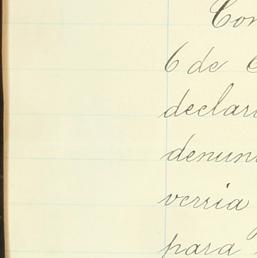 Con
6 de
declar
denun
verria
para